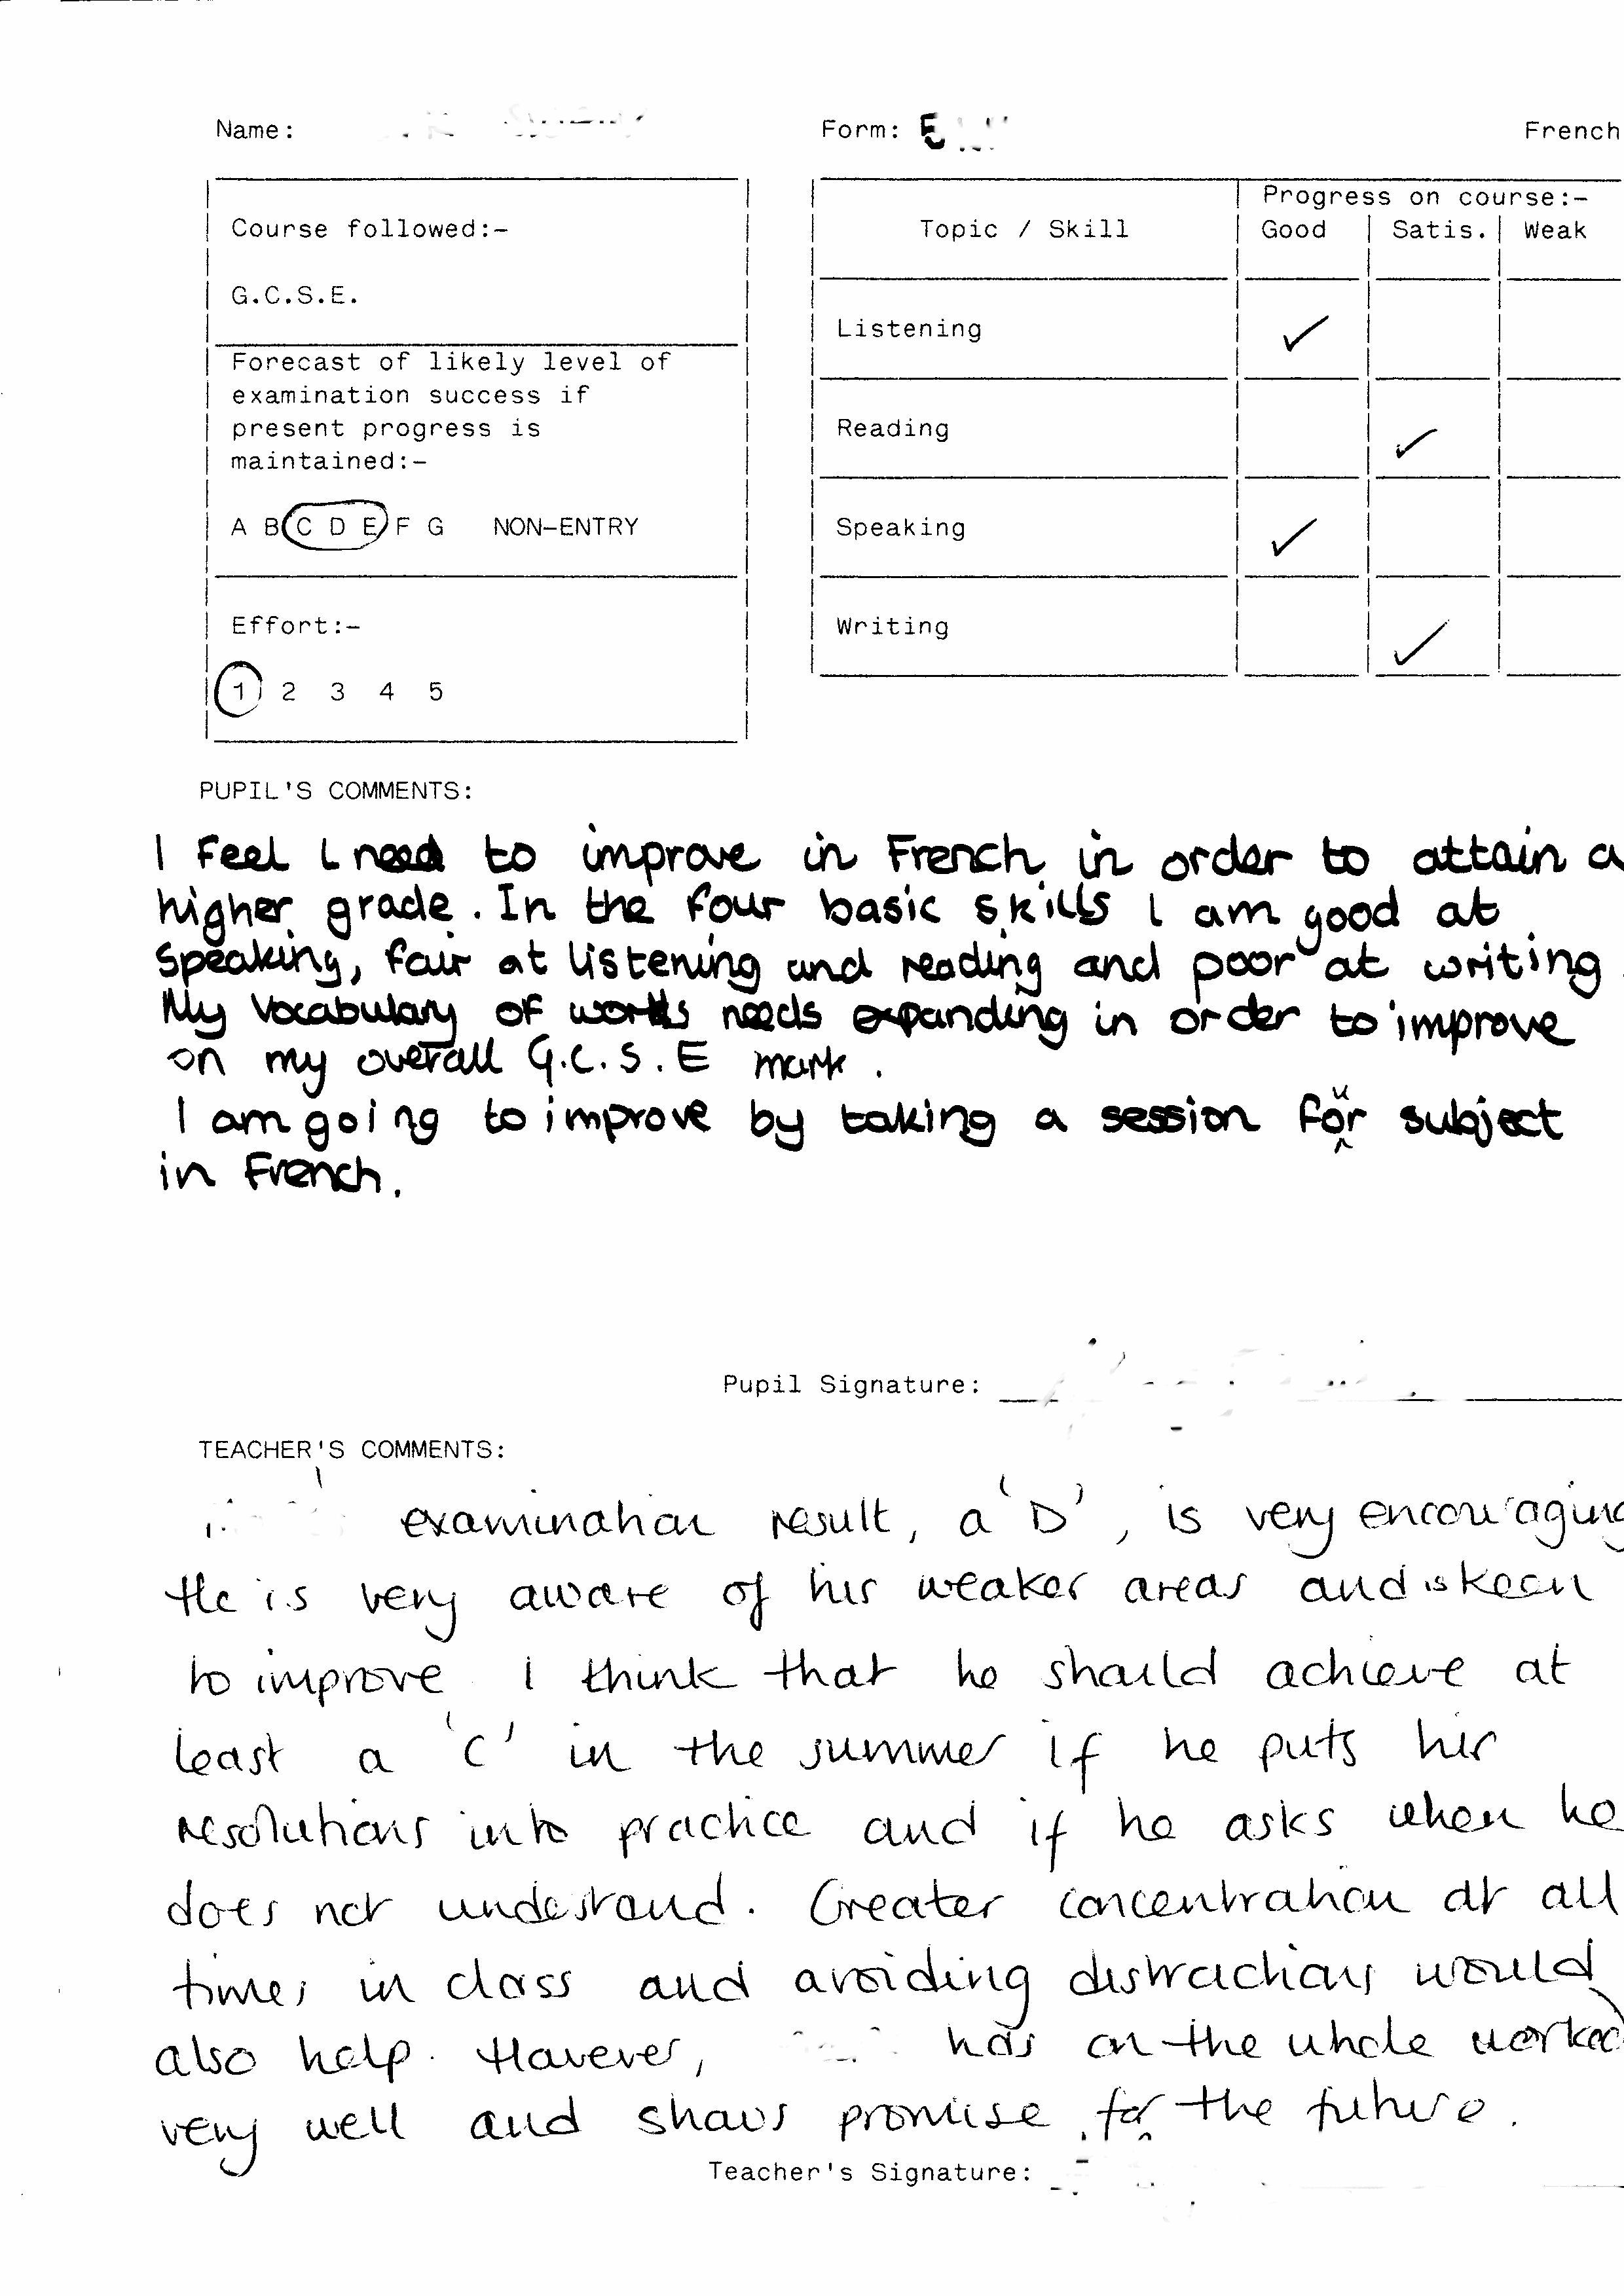 Name:
Form: 5
French
Course followed:-
G.C.S.E.
Forecast of likely level of
examination success if
present progress is
maintained:-
A B C D E F G NON-ENTRY
Effort:-
1 2 3 4 5
Progress on course:-
Topic / Skill Good Satis. Weak
Listening ✓
Reading ✓
Speaking ✓
Writing ✓
PUPIL'S COMMENTS:
I feel I need to improve in French in order to attain a
higher grade. In the four basic skills I am good at
speaking, fair at listening and reading and poor at writing.
My vocabulary of words needs expanding in order to improve
on my overall G.C.S.E mark.
I am going to improve by taking a session for subject
in French.
Pupil Signature:
TEACHER'S COMMENTS:
examination result, a 'D', is very encouraging
He is very aware of his weaker areas and is keen
to improve I think that he should achieve at
least a 'C' in the summer if he puts his
resolutions into practice and if he asks when he
does not understand. Greater concentration at all
times in class and avoiding distractions would
also help. However, has on the whole worked
very well and shows promise for the future.
Teacher's Signature: